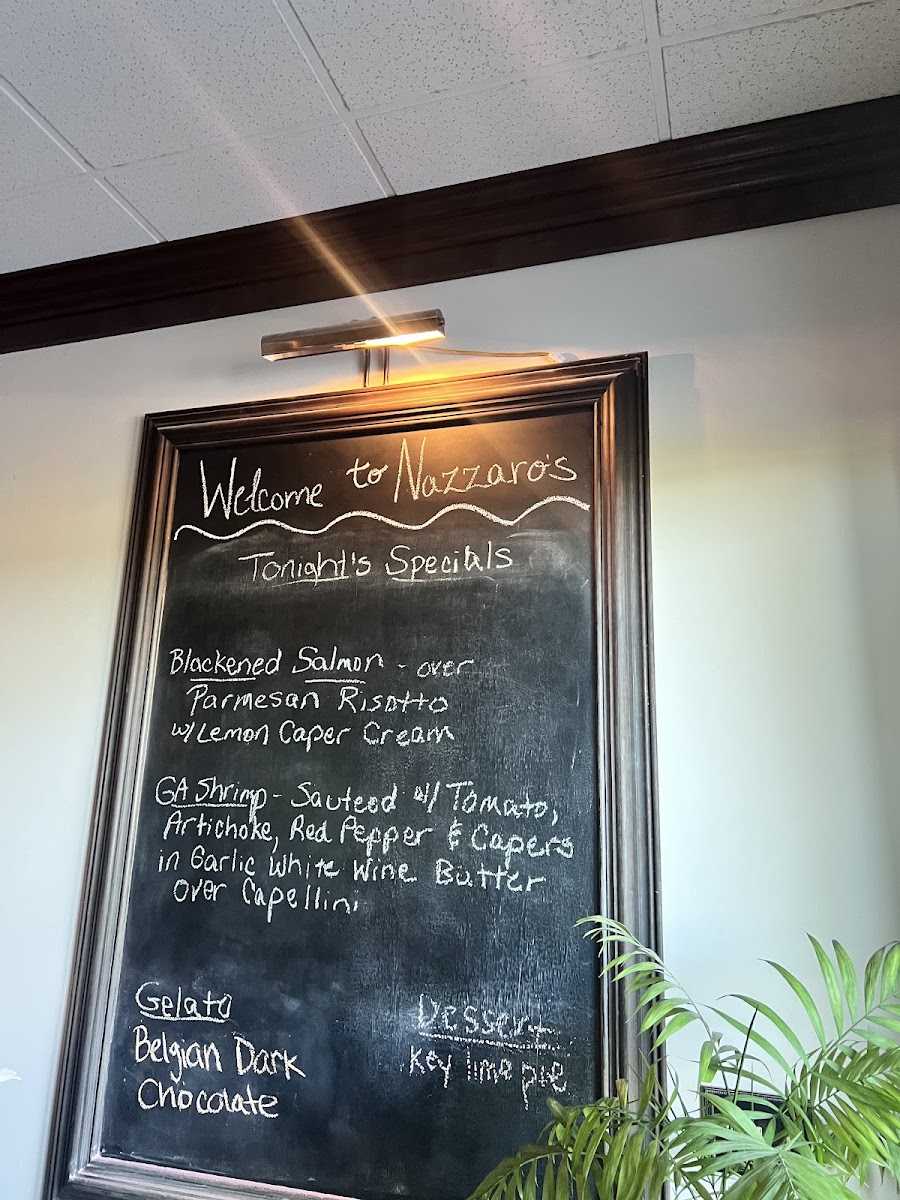 Welcome to Nazzaro's
Tonight's Specials
Blackened Salmon - over
Parmesan Risotto
w/ Lemon Caper Cream
GA Shrimp - Sauteed w/ Tomato,
Artichoke, Red Pepper & Capers
in Garlic White Wine Butter
over Capellini
Gelato
Belgian Dark
Chocolate
Dessert
Key lime pie